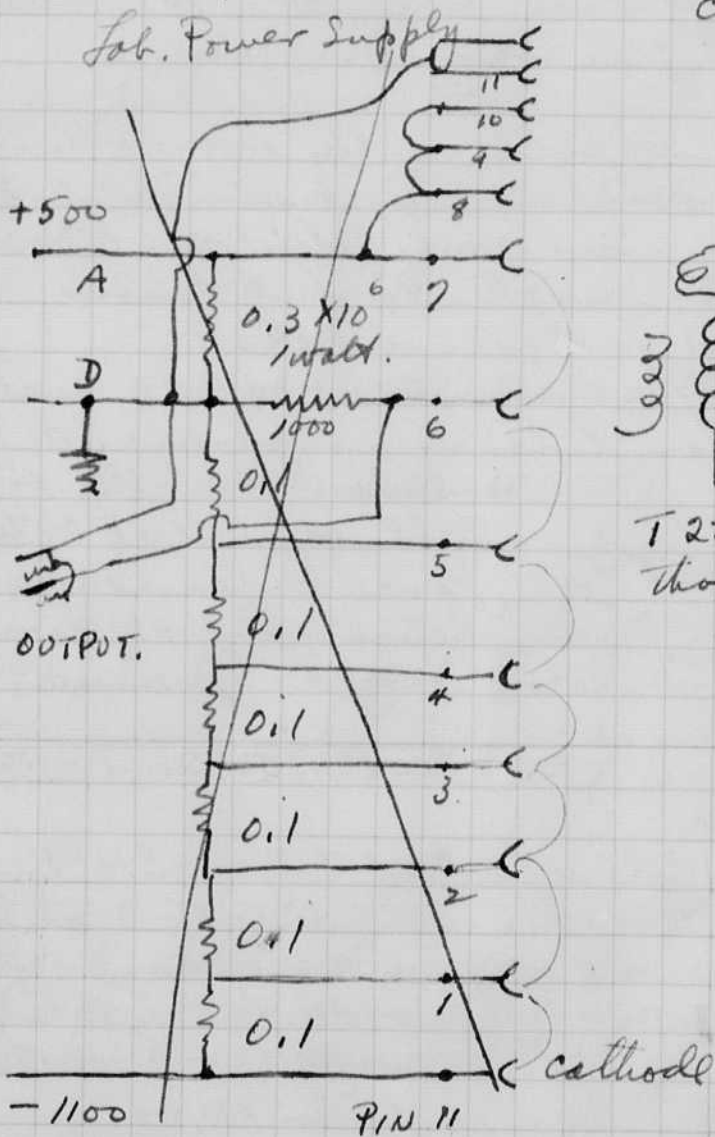 Lab. Power Supply
11
10
9
8
+500
A
6
7
0.3 X10
1 watt.
D
1000
6
0.1
5
OUTPUT.
0.1
4
0.1
3
0.1
2
0.1
1
0.1
cathode
-1100
PIN 11
T 2